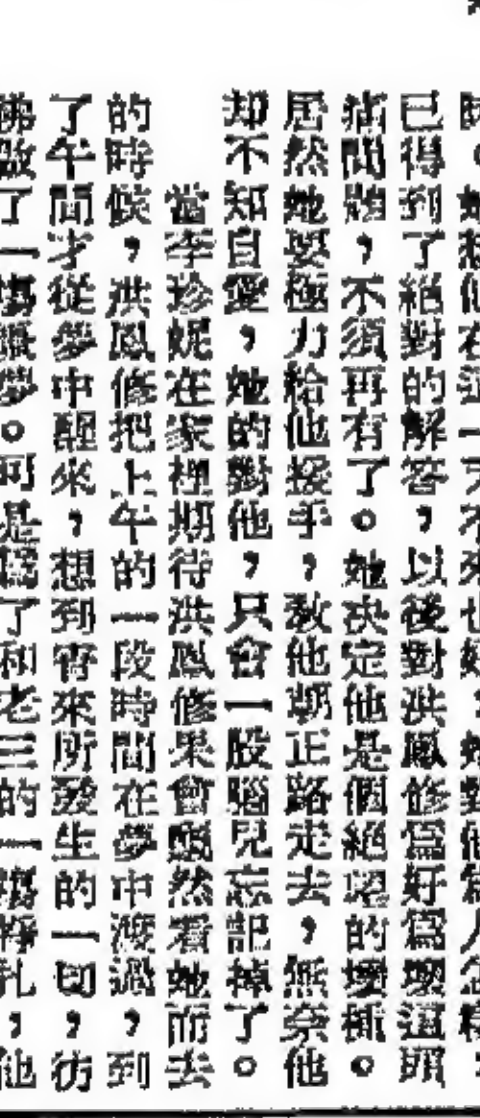 已得到了絕對的解答，以後對洪鳳修爲好爲壞這項
猜問題，不須再有了。她決定他是個絕望的壞種。
居然她要極力給他援手，教他朝正路走去，無奈他
却不知自愛，她的對他，只會一股腦兒忘記掉了。
當李珍妮在家裡期待洪鳳修果會飄然看她而去
的時候，洪鳳修把上午的一段時間在夢中渡過，到
了午間才從夢中醒來，想到宵來所發生的一切，彷
佛做了一場 夢。可是爲了和老三的一 掙扎，他